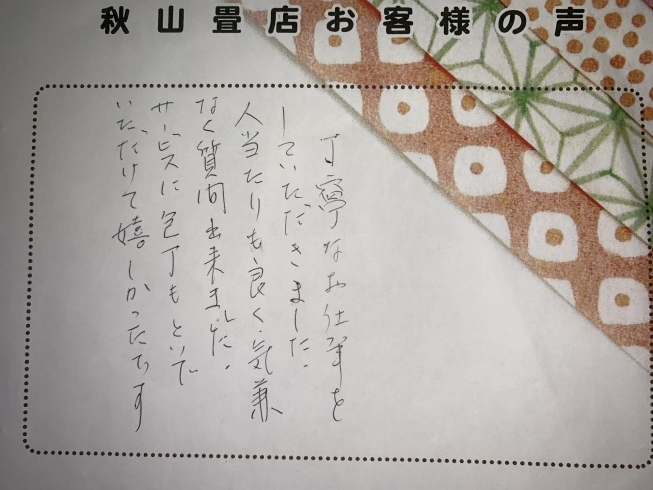 秋山畳店お客様の声
丁寧なお仕事を
していただきました。
人当たりも良く、気兼
なく質問出来ました。
サービスに包丁もといで
いただけて嬉しかったです